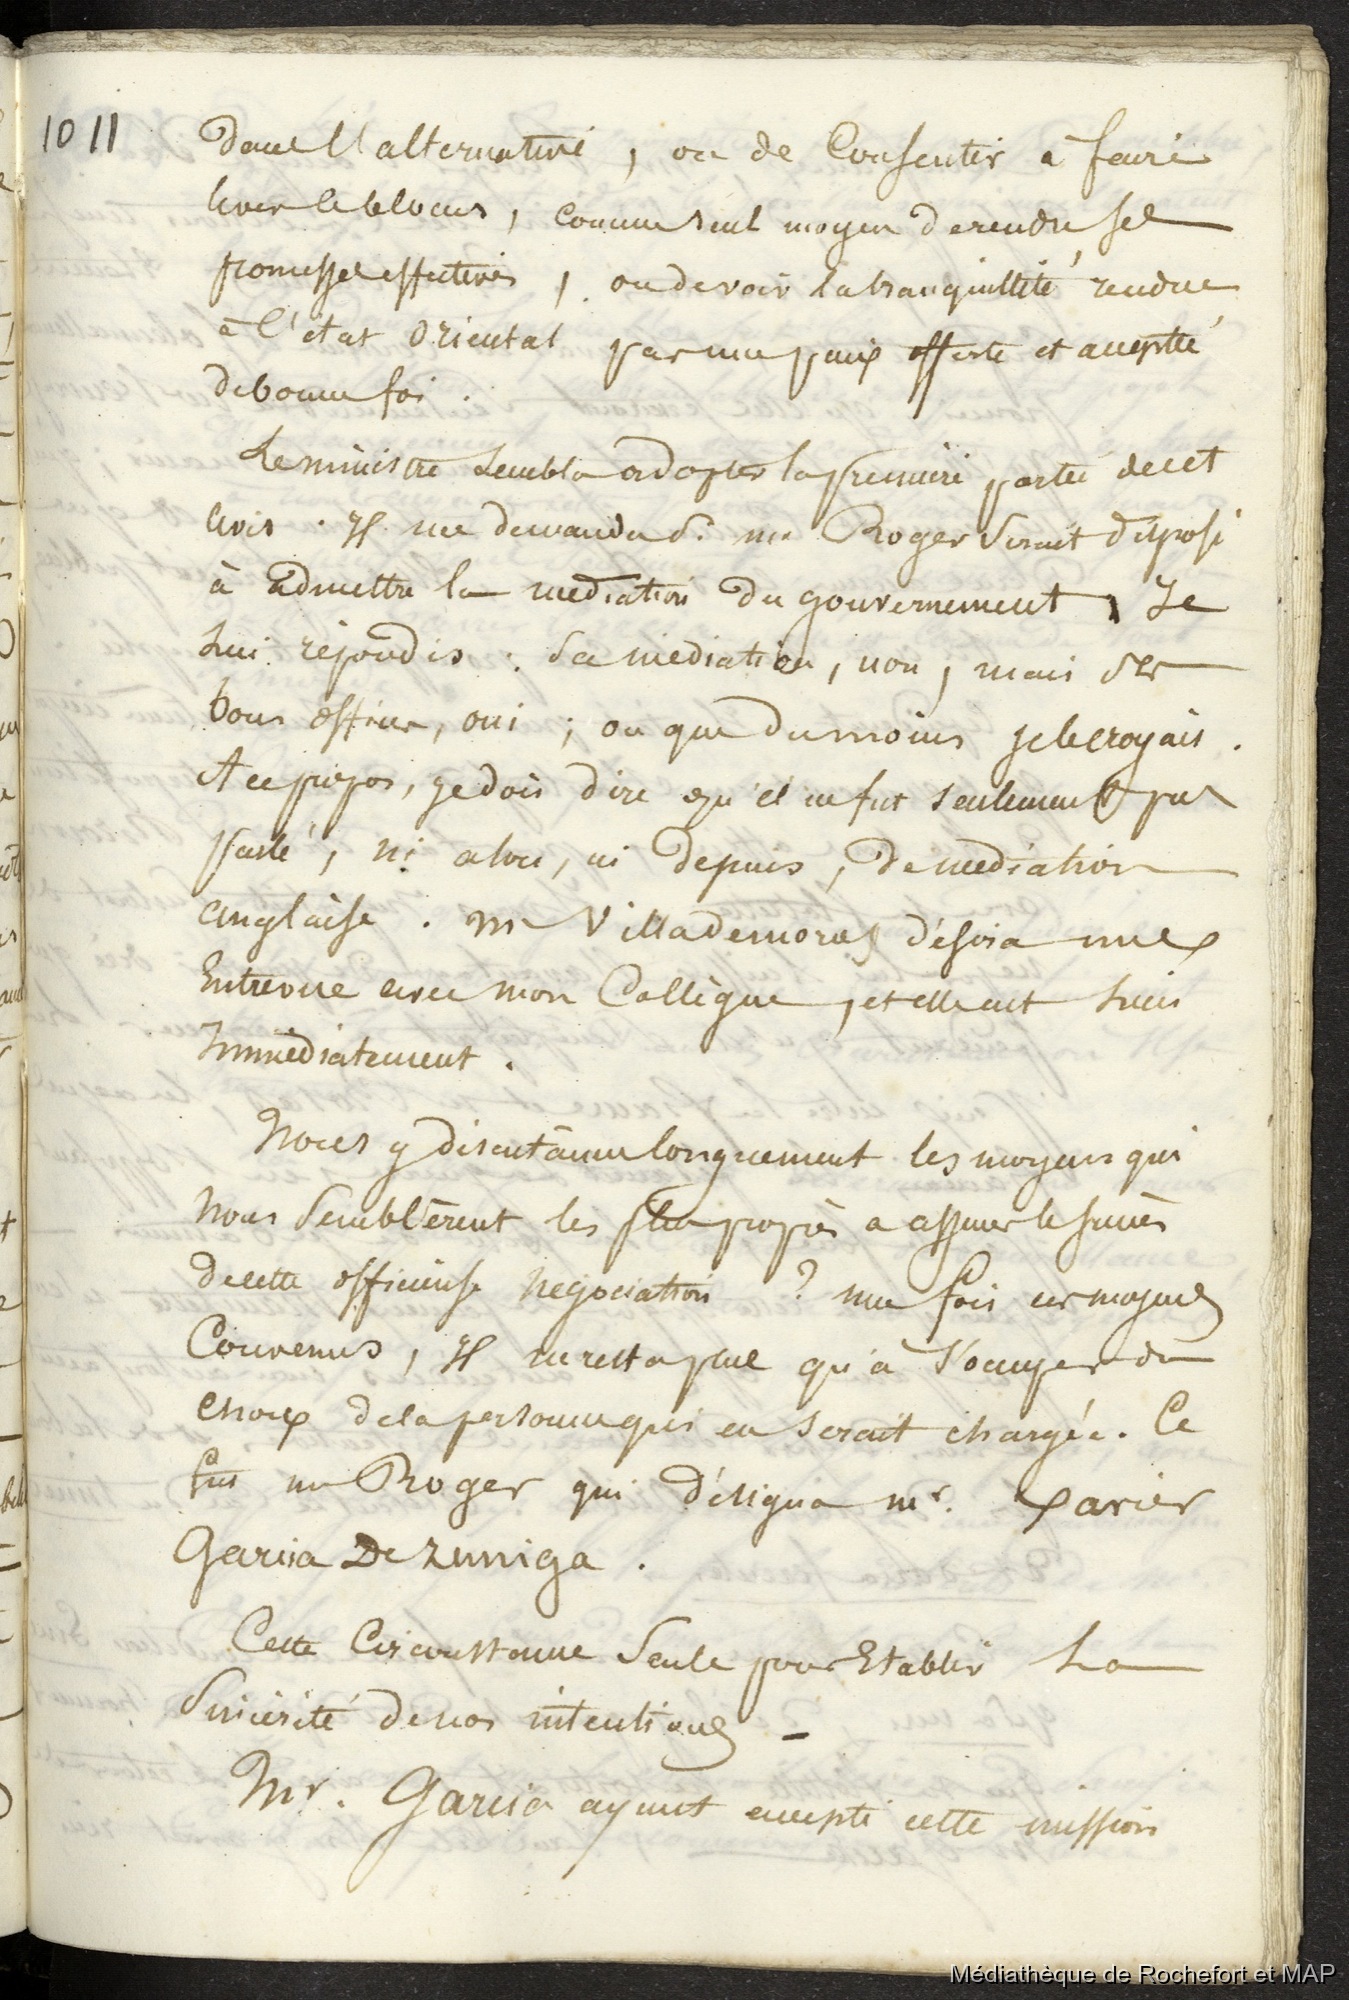 10 11
dans l'alternative, ou de Consentir à faire
lever le blocus, comme seul moyen de rendre ses
promesses effectives, ou de voir la tranquillité rendue
à l'état Oriental par une paix offerte et acceptée
de bonne foi.
Le ministre sembla adopter la première partie de cet
avis. Il me demanda si mr Roger serait disposé
à admettre la médiation du gouvernement, Je
lui répondis : Sa médiation, non, mais ses
bons offices, oui ; ou que du moins je le croyais.
A ce propos, je dois dire qu'il ne fut seulement pas
parlé, ni alors, ni depuis, de médiation
anglaise. mr Villademoros désira une
Entrevue avec mon Collègue, et elle eut lieu
Immédiatement.
Nous y discutâmes longuement les moyens qui
nous semblèrent les plus propres a assurer le succès
de cette officieuse négociation ? une fois ces moyens
Convenus, Il ne resta plus qu'à s'occuper du
choix de la personne qui en serait chargée. Ce
fut mr Roger qui désigna mr. Xavier
Garcia De Zuniga.
Cette Circonstance Seule pour Etablir La
Sincérité de nos intentions -
Mr. Garcia ayant accepté cette mission
Médiathèque de Rochefort et MAP